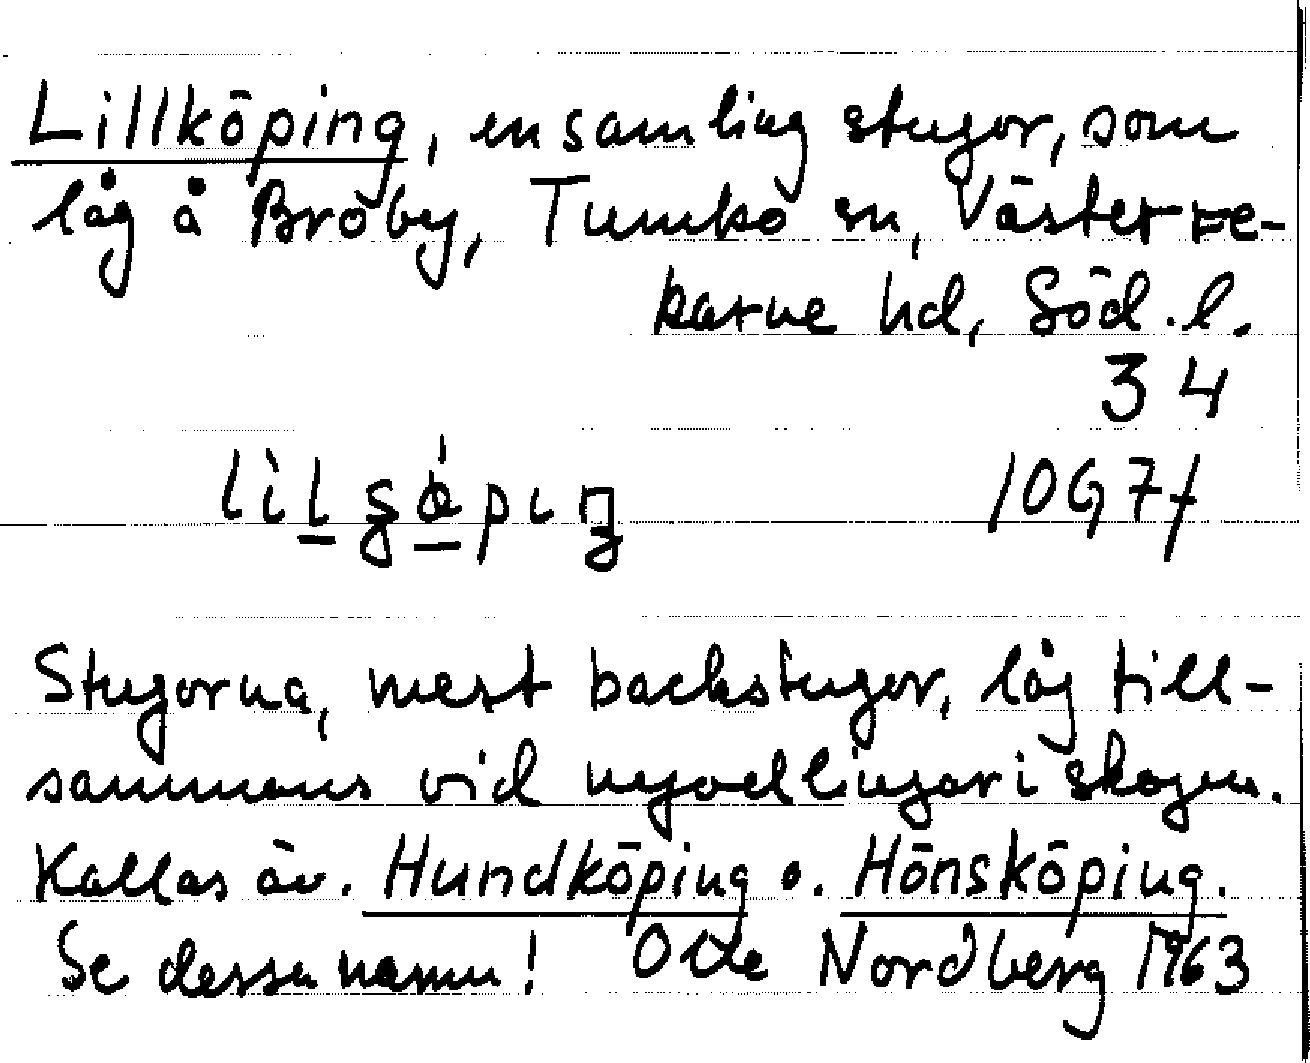 Lillköping, en samling stugor, som
låg å Bröby, Tumbo sn, Västerre-
karne hd, Söd. l.
34
10G7f
Stugorna, mest backstugor, låg till-
sammans vid nyodlingar i skogen.
Kallas äv. Hundköping o. Hönsköping.
Se dessa namn! Otto Nordberg 1963